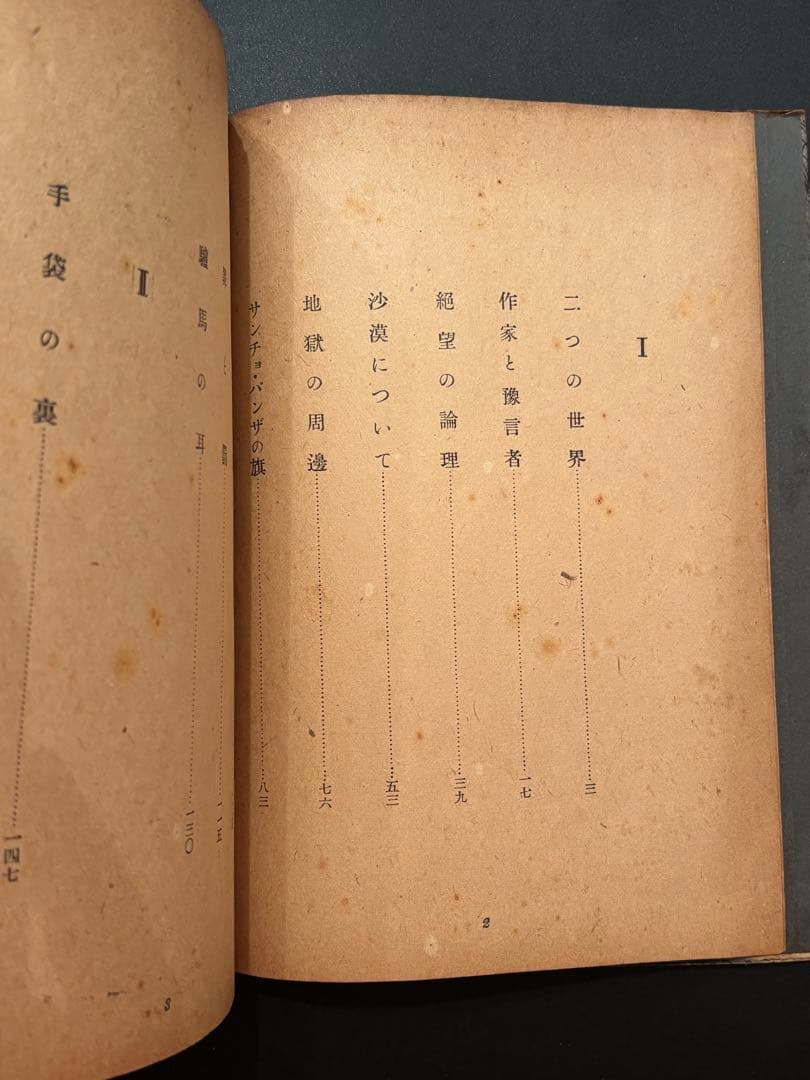 I
二つの世界……………………三
作家と豫言者……………………一七
絶望の論理……………………三九
沙漠について……………………五三
地獄の周邊……………………七六
サンチョ・パンザの旗……………………八三
2
驢馬の耳……………………一三〇
手袋の裏……………………一四七
3